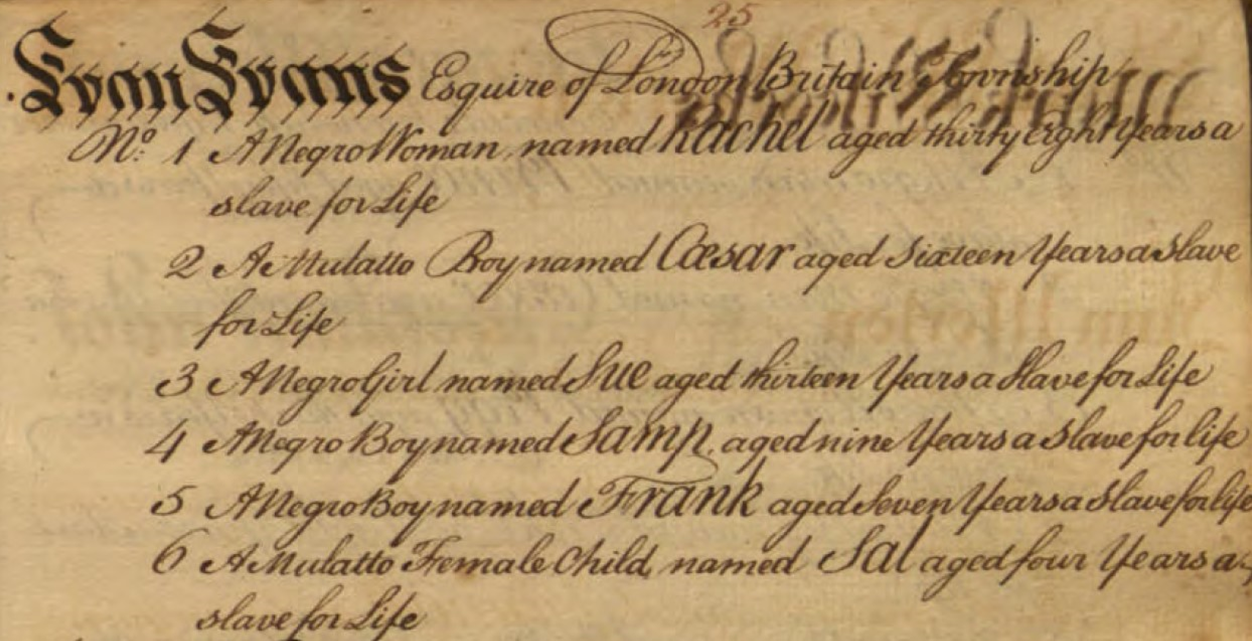 25
Evan Evans Esquire of London Britain Township
No: 1 A Negro Woman, named Rachel aged thirty eight Years a
slave for Life
2 A Mulatto Boy named Cæsar aged Sixteen Years a Slave
for Life
3 A Negro Girl named Sue aged thirteen Years a Slave for Life
4 A Negro Boy named Samp, aged nine Years a Slave for life
5 A Negro Boy named Frank aged Seven Years a Slave for life
6 A Mulatto Female Child, named Sal aged four Years a
slave for Life